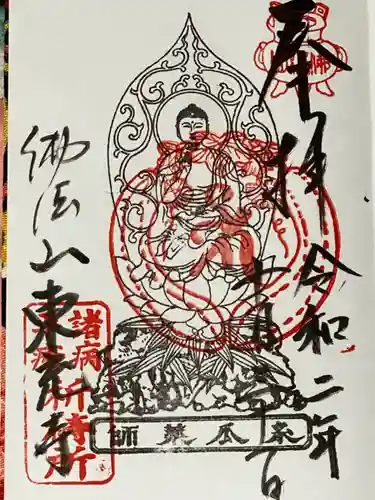 奉拝
令和二年
十月
日
糸瓜薬師
佛法山
東充寺
諸病
祈祷所